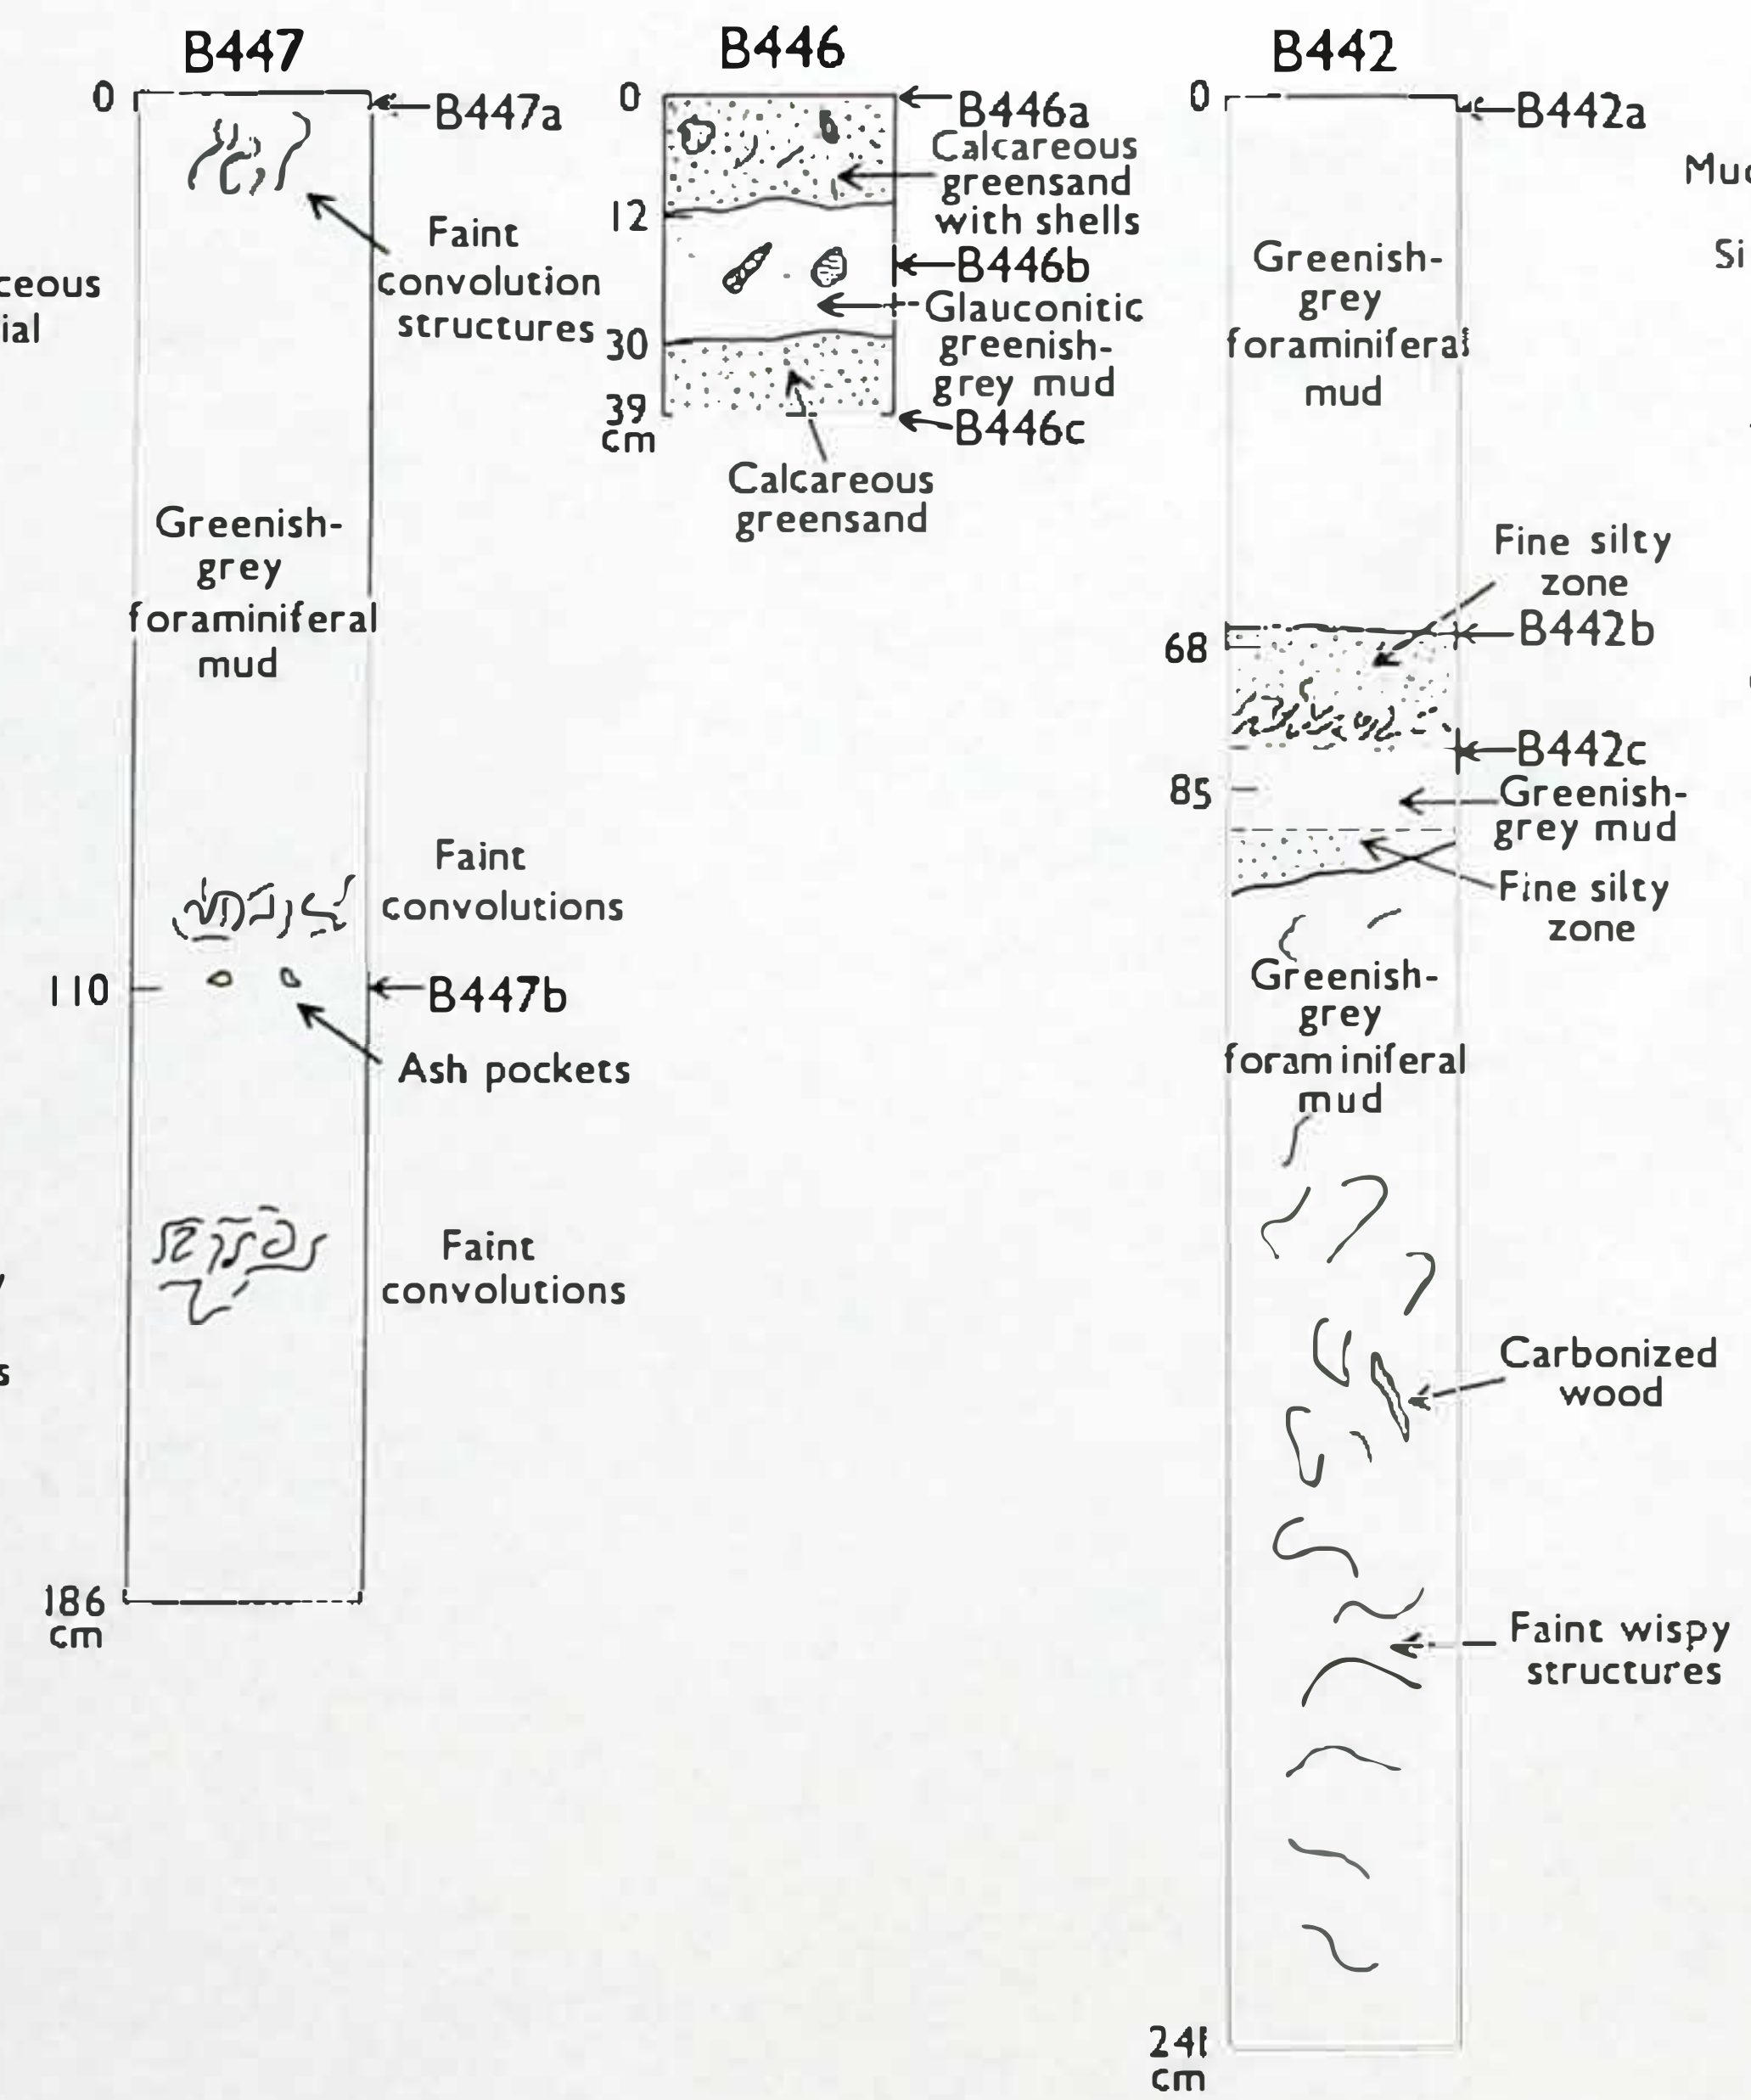 B447
0
B447a
Faint
convolution
structures
Greenish-
grey
foraminiferal
mud
Faint
convolutions
110
B447b
Ash pockets
Faint
convolutions
186
cm
ceous
ial
s
B446
0
B446a
Calcareous
greensand
with shells
12
B446b
Glauconitic
greenish-
grey mud
30
39
cm
B446c
Calcareous
greensand
B442
0
B442a
Greenish-
grey
foraminiferal
mud
Fine silty
zone
68
B442b
B442c
85
Greenish-
grey mud
Fine silty
zone
Greenish-
grey
foraminiferal
mud
Carbonized
wood
Faint wispy
structures
241
cm
Muc
Si